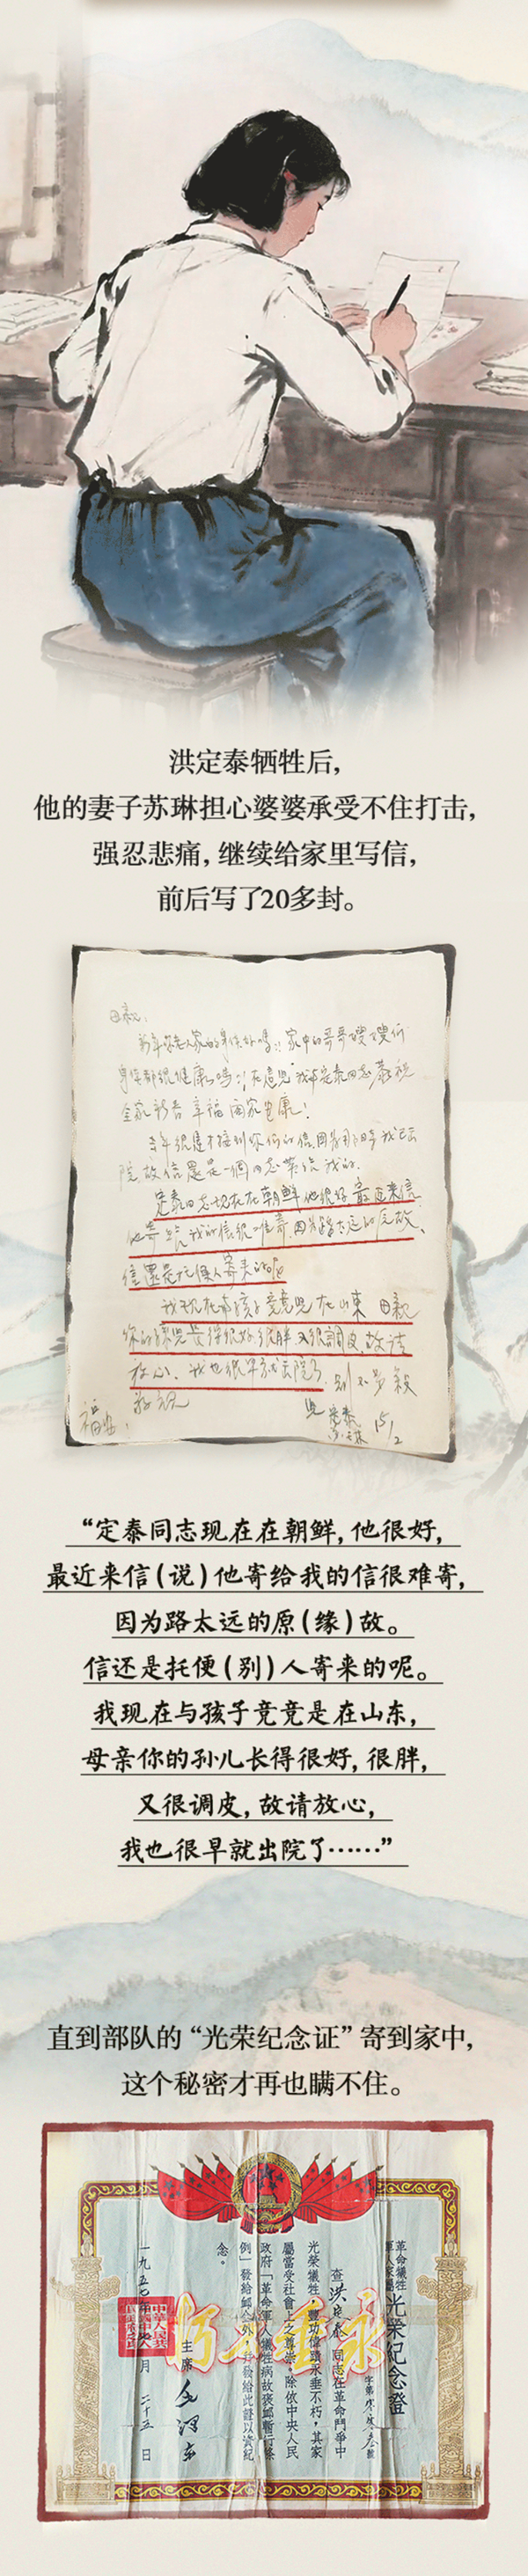 洪定泰牺牲后，
他的妻子苏琳担心婆婆承受不住打击，
强忍悲痛，继续给家里写信，
前后写了20多封。
母亲：
新年你老人家的身体好吗？家中的哥哥嫂嫂们
身体都很健康吗？
全家新春幸福阖家安康！
院故信还是一个同志带给我的.
定泰同志现在在朝鲜他很好最近来信
他寄给我的信很难寄.因为路太远的原故、
信还是托便人寄来的呢
我现在与孩子竞竞是在山东 母亲
你的孙儿长得很好很胖又很调皮.故请
放心、我也很早就出院了.别不多叙
“定泰同志现在在朝鲜，他很好，
最近来信（说）他寄给我的信很难寄，
因为路太远的原（缘）故。
信还是托便（别）人寄来的呢。
我现在与孩子竞竞是在山东，
母亲你的孙儿长得很好，很胖，
又很调皮，故请放心，
我也很早就出院了……”
直到部队的“光荣纪念证”寄到家中，
这个秘密才再也瞒不住。
革命牺牲
軍人家屬
光榮紀念證
查洪定泰同志在革命鬥爭中
光榮犧牲，豐功偉蹟永垂不朽，其家
屬當受社會上之尊崇。除依中央人民
政府「革命軍人犧牲病故褒卹暫行條
例」發給卹金外，並發給此證以資紀
念。
永垂不朽
主席 毛澤東
二十五日